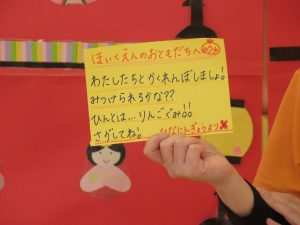 ほいくえんのおともだちへ
わたしたちとかくれんぼしましょ!
みつけられるかな??
ひんとは…りんごぐみ!!
さがしてね! ひなにんぎょうより